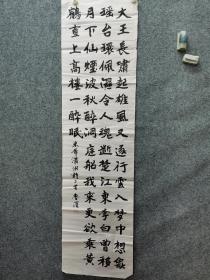 大王長嘯起雄風又逐行雲入夢中想象
瑶台環佩濕令人魂逝楚江東李白曾移
月下仙煙波秋醉洞庭船我來更欲乘黃
鶴直上高樓一醉眠 米芾